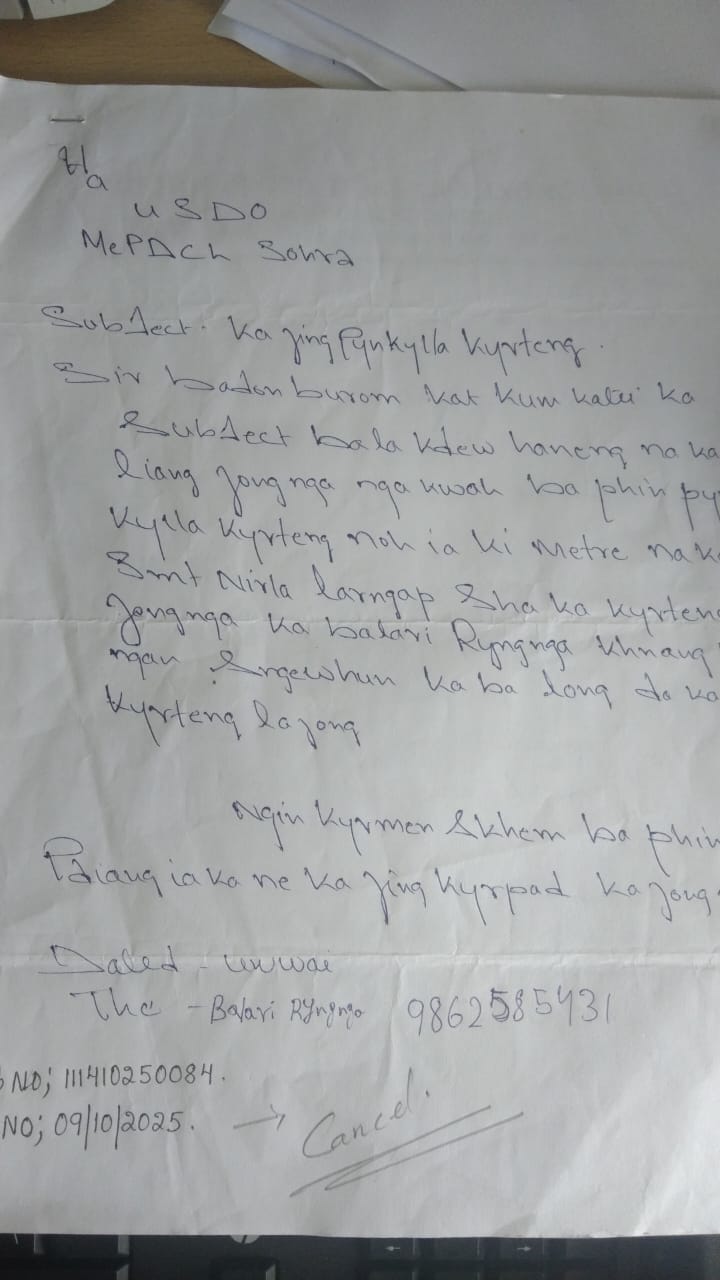 Ha
U SDO
MePDCL Sohra
Subject. Ka jing Pynkylla Kyrteng.
Sir badonburom kat kum katei ka
Subject bala kdew haneng na ka
liang jongnga nga kwah ba phin py
kylla kyrteng noh ia ki Metre na k
Smt Nirla larngap Sha ka kyrteng
Jongnga ka balari Ryngnga khnang
ngan ka ba long da ka
kyrteng lajong
Ngin kyrmen Skhem ba phin
Pdiang ia ka ne ka jing kyrpad ka jong
Dated - Umwai
The - Balari Ryngnga 9862585431
NO; 111410250084.
NO; 09/10/2025. → Cancel.